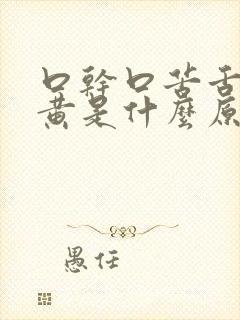 口幹口苦舌
黃是什麼原
愚任